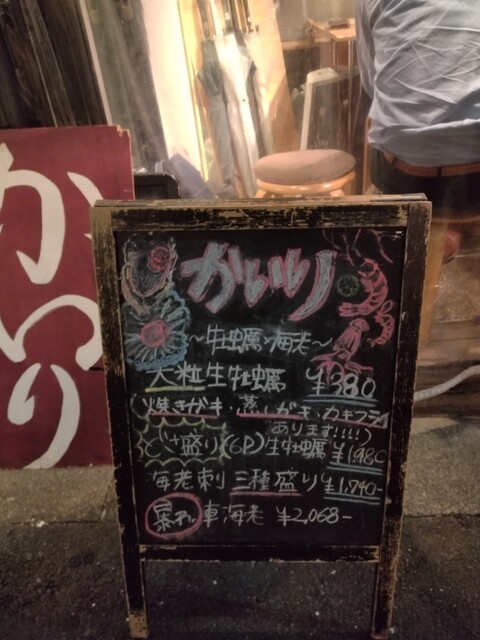 かいり
かいり
〜牡蠣×海老〜
大粒生牡蠣 ¥380
(焼きガキ・蒸しガキ・カキフライ
あります!!!!)
どさ盛り(6P)生牡蠣 ¥1,980
海老刺三種盛り ¥1,740-
暴れ車海老 ¥2,068-